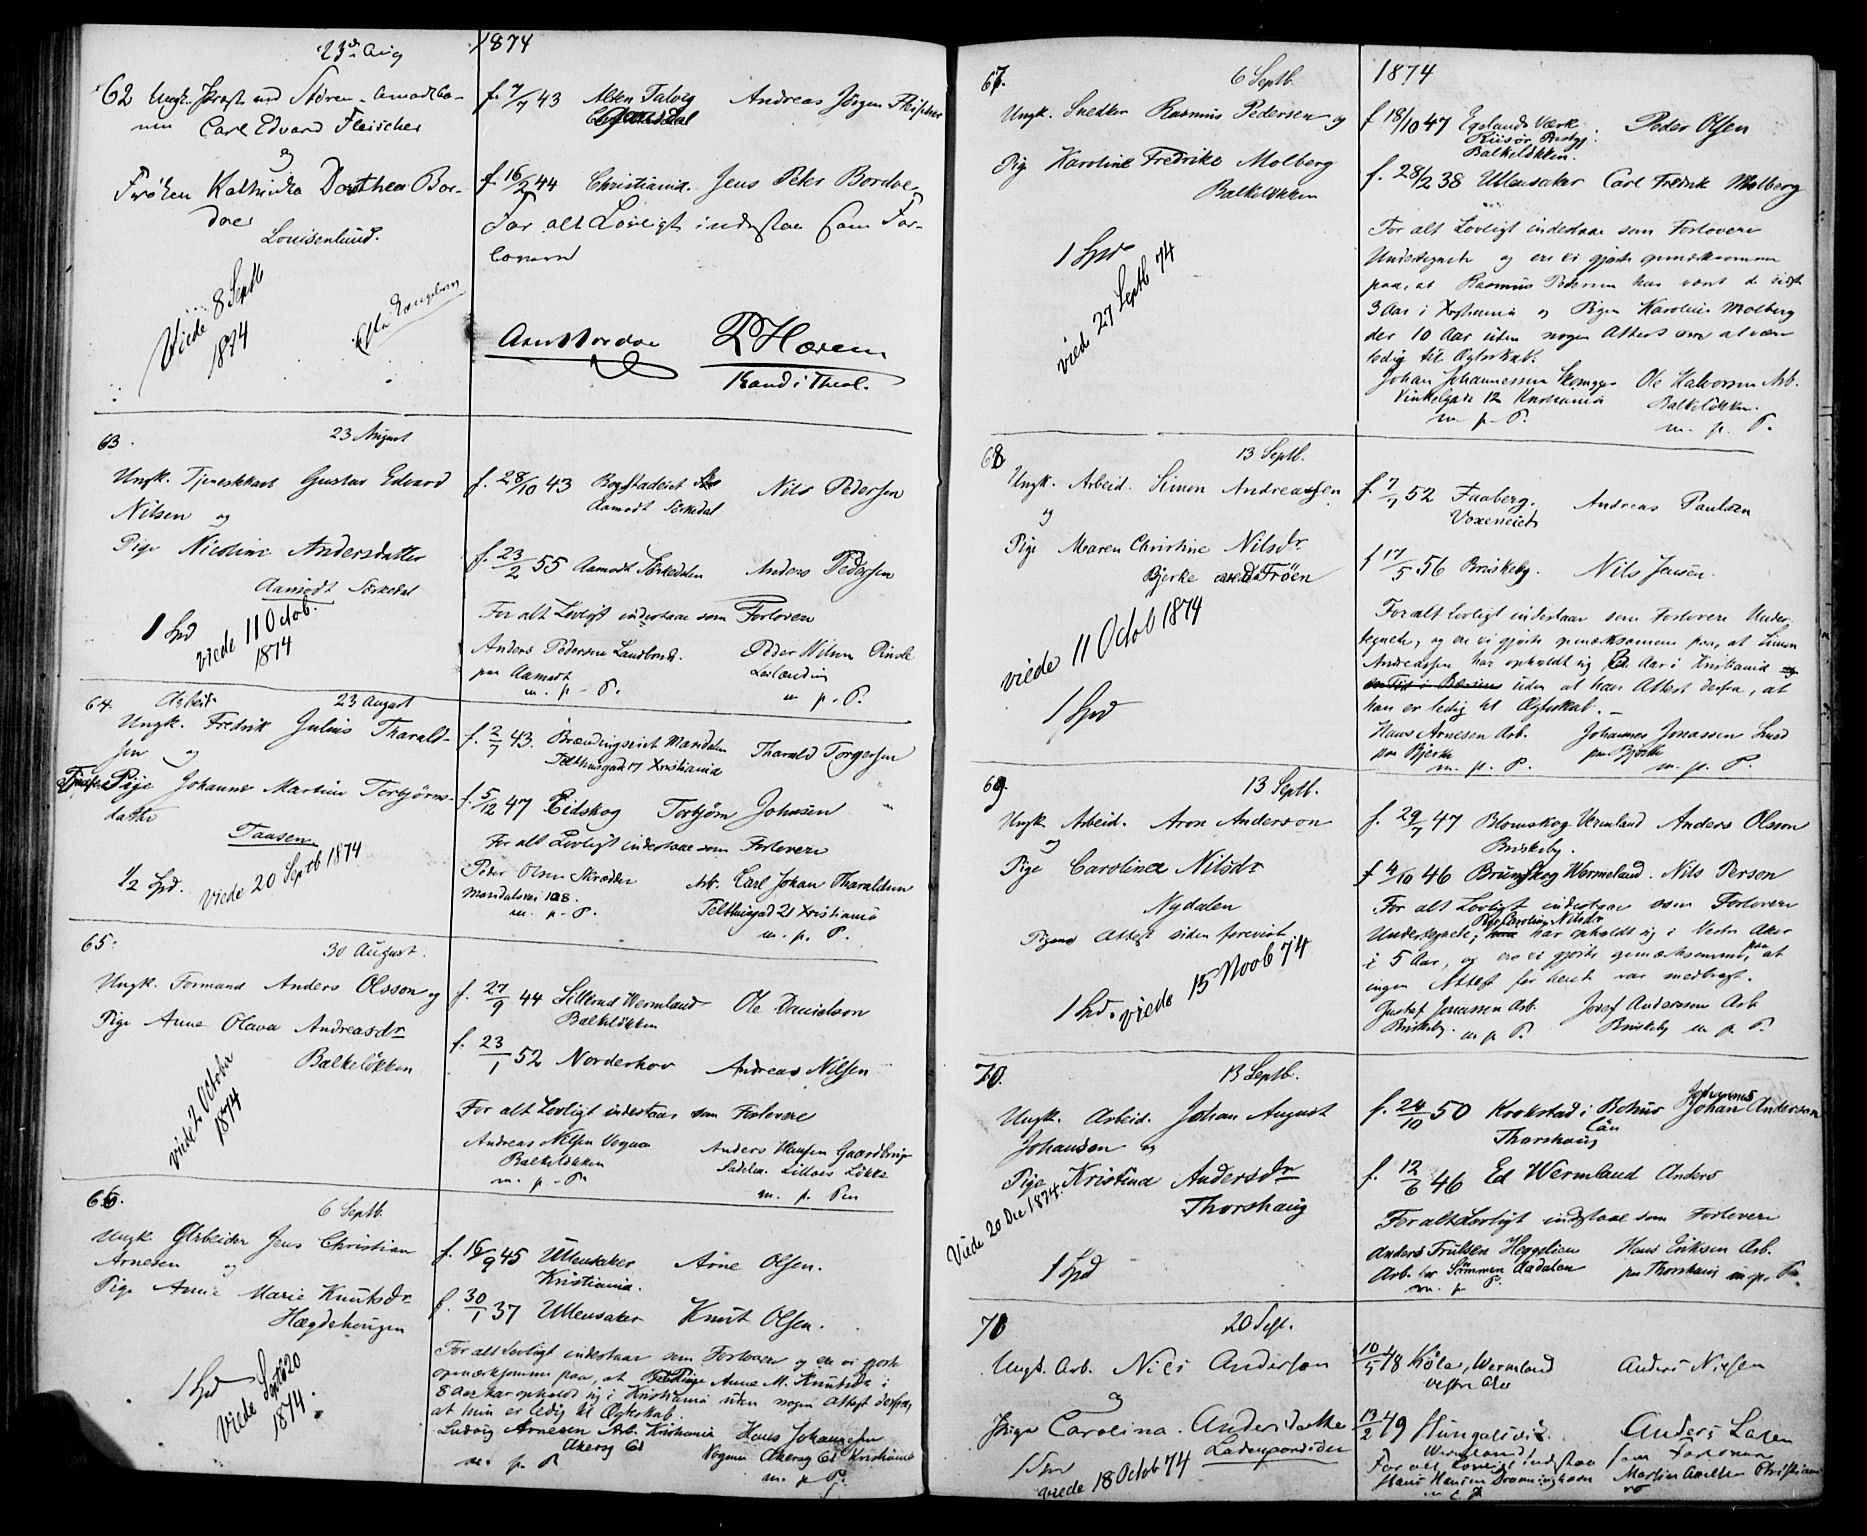 23de Aug 1874
62 Ungk. Præst ved Stören - Amodtba-
nen Carl Edvard Fleischer
og
Frøken Kathinka Dorthea Bor-
doe
Louisenlund.
Viede 8 Septb
1874
f. 7/7 43 Alten Talvig Andreas Jörgen Fleischer
f. 16/2 44 Christiania. Jens Peter Bordoe
For alt Lovligt indestaa som For-
lovere
P Hærem
Kand i Theol.
63. 23 August
Ungk. Tjenestekarl Gustav Edvard
Nilsen og
Pige Nicoline Andersdatter
Aamodt Sörkedal
1 Spd viede 11 Octob.
1874
f. 28/10 43 Bogstadeiet Nils Pedersen
Aamodt Sörkedal
f. 23/2 55 Aamodt Sörkedalen Anders Pedersen
For alt Lovligt indestaae som Forlovere
Anders Pedersen Landbrd. Peder Nilsen
paa Aamodt
m. p. P. m. p. P.
64. Arbeid. 23 August
Ungk. Fredrik Julius Tharald-
sen og
Pige Johanne Martine Torbjörns-
datter
Taasen
1/2 Spd. viede 20 Septb 1874
f. 2/7 43. Brændingseiet Mandalen Tharald Torgersen
Telthusgad 17 Xristiania
f. 5/12 47 Eidskog Torbjörn Johnsen
For alt Lovligt indestaae som Forlovere
Peder Olsen Skrædder Arb. Carl Johan Tharaldsen
Mandalsvei 10 8. Telthusgad 21 Xristiania
m. p. P. m. p. P.
65. 30 August.
Ungk. Formand Anders Olsson og
Pige Anne Olava Andreasdr
Balkelökken
viede 2 October
1874
f. 27/9 44 Sillerud Wermland Ole Danielson
Balkelökken
f. 23/1 52 Norderhov Andreas Nilsen
For alt Lovligt indestaae som Forlovere
Andreas Nilsen Vognm Anders Hansen
Balkelökken Sadelm. Lilloes Lökke
m. p. P. m. p. Pen
66. 6 Septb.
Ungk. Arbeider Jens Christian
Arnesen og
Pige Anne Marie Knutsdr
Hægdehougen
1 Spd Viede Septb 20
1874.
f. 16/9 45 Ullensaker Arne Olsen.
Kristiania.
f. 30/1 37 Ullensaker Knut Olsen.
For alt Lovligt indestaae som Forlovere og ere vi gjorte
opmærksomme paa, at Pige Anne M. Knutsdr i
8 Aar har opholdt sig i Kristiania uden nogen Attest derfra,
at hun er ledig til Ægteskab
Ludvig Arnesen Arb. Kristiania Hans Johannesen
Akersg 61 Vognm Akersg 61 Kristiania
m. p. P. m. p. P.
67. 6 Septb. 1874
Ungk. Snedker Rasmus Pedersen og
Pig Karoline Fredrike Molberg
Balkelökken
1 Spd
viede 27 Septb 74
f 18/10 47 Egelands Værk Peder Olsen
Balkelökken.
f. 28/2 38 Ullensaker Carl Fredrik Molberg
For alt Lovligt indestaae som Forlovere
Undertegnede og ere vi gjorte opmærksomme
paa, at Rasmus Pedersen har været de sidste
3 Aar i Xristiania og Pigen Karoline Molberg
der 10 Aar uden nogen Attest om at være
ledig til Ægteskab.
Johan Johannessen Skomgr Ole Halvorsen Arb.
Vinkelgade 12 Kristiania Balkelökken.
m. p. P. m. p. P.
68 13 Septb.
Ungk. Arbeid. Simen Andreassen
og
Pige Maren Christine Nilsdr
Bjerke Fröen
viede 11 Octob 1874
1 Spd
f. 7/7 52 Faaberg. Andreas Paulsen
Voxeneiet
f 17/5 56 Briskeby. Nils Jensen.
For alt Lovligt indestaae som Forlovere Under-
tegnede, og ere vi gjorte opmærksomme paa, at Simen
Andreassen har opholdt sig Aar i Kristiania og
en Tid i Bærum uden at have Attest derfra, at
han er ledig til Ægteskab.
Hans Arnesen Arb. Johannes Jonassen Smed
paa Bjerke paa Bjerke
m. p. P. m. p. P.
69 13 Septb.
Ungk Arbeid. Aron Anderson
og
Pige Carolina Nilsdr
Nydalen
Pigens Attest siden forevist
1 Spd. viede 15 Novb 74
f. 29/7 47 Blomskog Vermland Anders Olsson
Briskeby.
f 4/10 46 Brunskog Wermeland. Nils Person
For alt Lovligt indestaae som Forlovere
Pige Carolina Nilsdr
Undertegnede; har opholdt sig i Vestre Aker
i 5 Aar, og ere vi gjorte opmærksomme paa, at
ingen Attest før dente var medbragt.
Gustaf Jonassen Arb. Josef Anderssen Arb
Briskeby. m p P. Briskeby m p P.
70. 13 Septb.
Ungk. Arbeid. Johan August
Johanson og
Pige Kristina Andersdr
Thorshaug
Viede 20 Dec 1874.
1 Spd
f. 24/10 50 Krokstad i Bohus Johannes Johan Anderson
Län
Thorshaug
f. 12/6 46 Ed Wermland Anders
For alt Lovligt indestaae som Forlovere
Anders Trulsen Heggelien Hans Eriksen Arb.
Arb. Aadalen paa Thorshaug m. p. P.
m. p P.
71 20 Sept.
Ungk. Arb. Nils Anderson
og
Pige Carolina Andersdatter
Ladegaardsöen
1 Spd
viede 18 Octob 74
10/5 48 Köla, Wermland Anders Nilsen
Vestre Aker
13/2 49 Anders Larsen
Wermland
For alt Lovligt Indestaa som Forlovere
Hans Hansen Martin Christiania